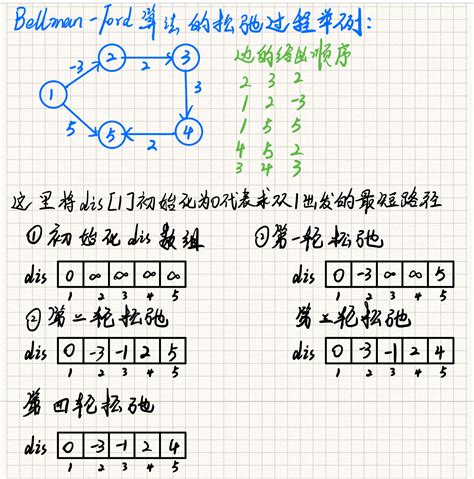 Bellman-Ford算法的松弛过程举例:
边的给出顺序
-3 2 2 3
1 3
5 5 2 4
2 3 2
1 2 -3
1 5 5
4 5 2
3 4 3
这里将dis[1]初始化为0代表求从1出发的最短路径
① 初始化dis数组
dis 0 ∞ ∞ ∞ ∞
1 2 3 4 5
② 第一轮松弛
dis 0 -3 ∞ ∞ 5
1 2 3 4 5
② 第二轮松弛
dis 0 -3 -1 2 5
1 2 3 4 5
第三轮松弛
dis 0 -3 -1 2 4
1 2 3 4 5
第四轮松弛
dis 0 -3 -1 2 4
1 2 3 4 5